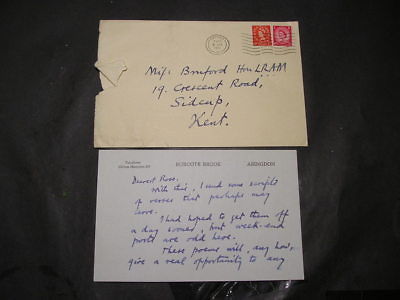 Miss Brmford Hon LRAM
19. Crescent Road,
Sidcup,
Kent.
Telephone
BUSCOTE BROOK
ABINGDON
Dearest Rose,
With this, I send some scripts
of verses that perhaps may
serve.
I had hoped to get them off
a day sooner, but week-end
posts are odd here.
These poems will, any how,
give a real opportunity to any